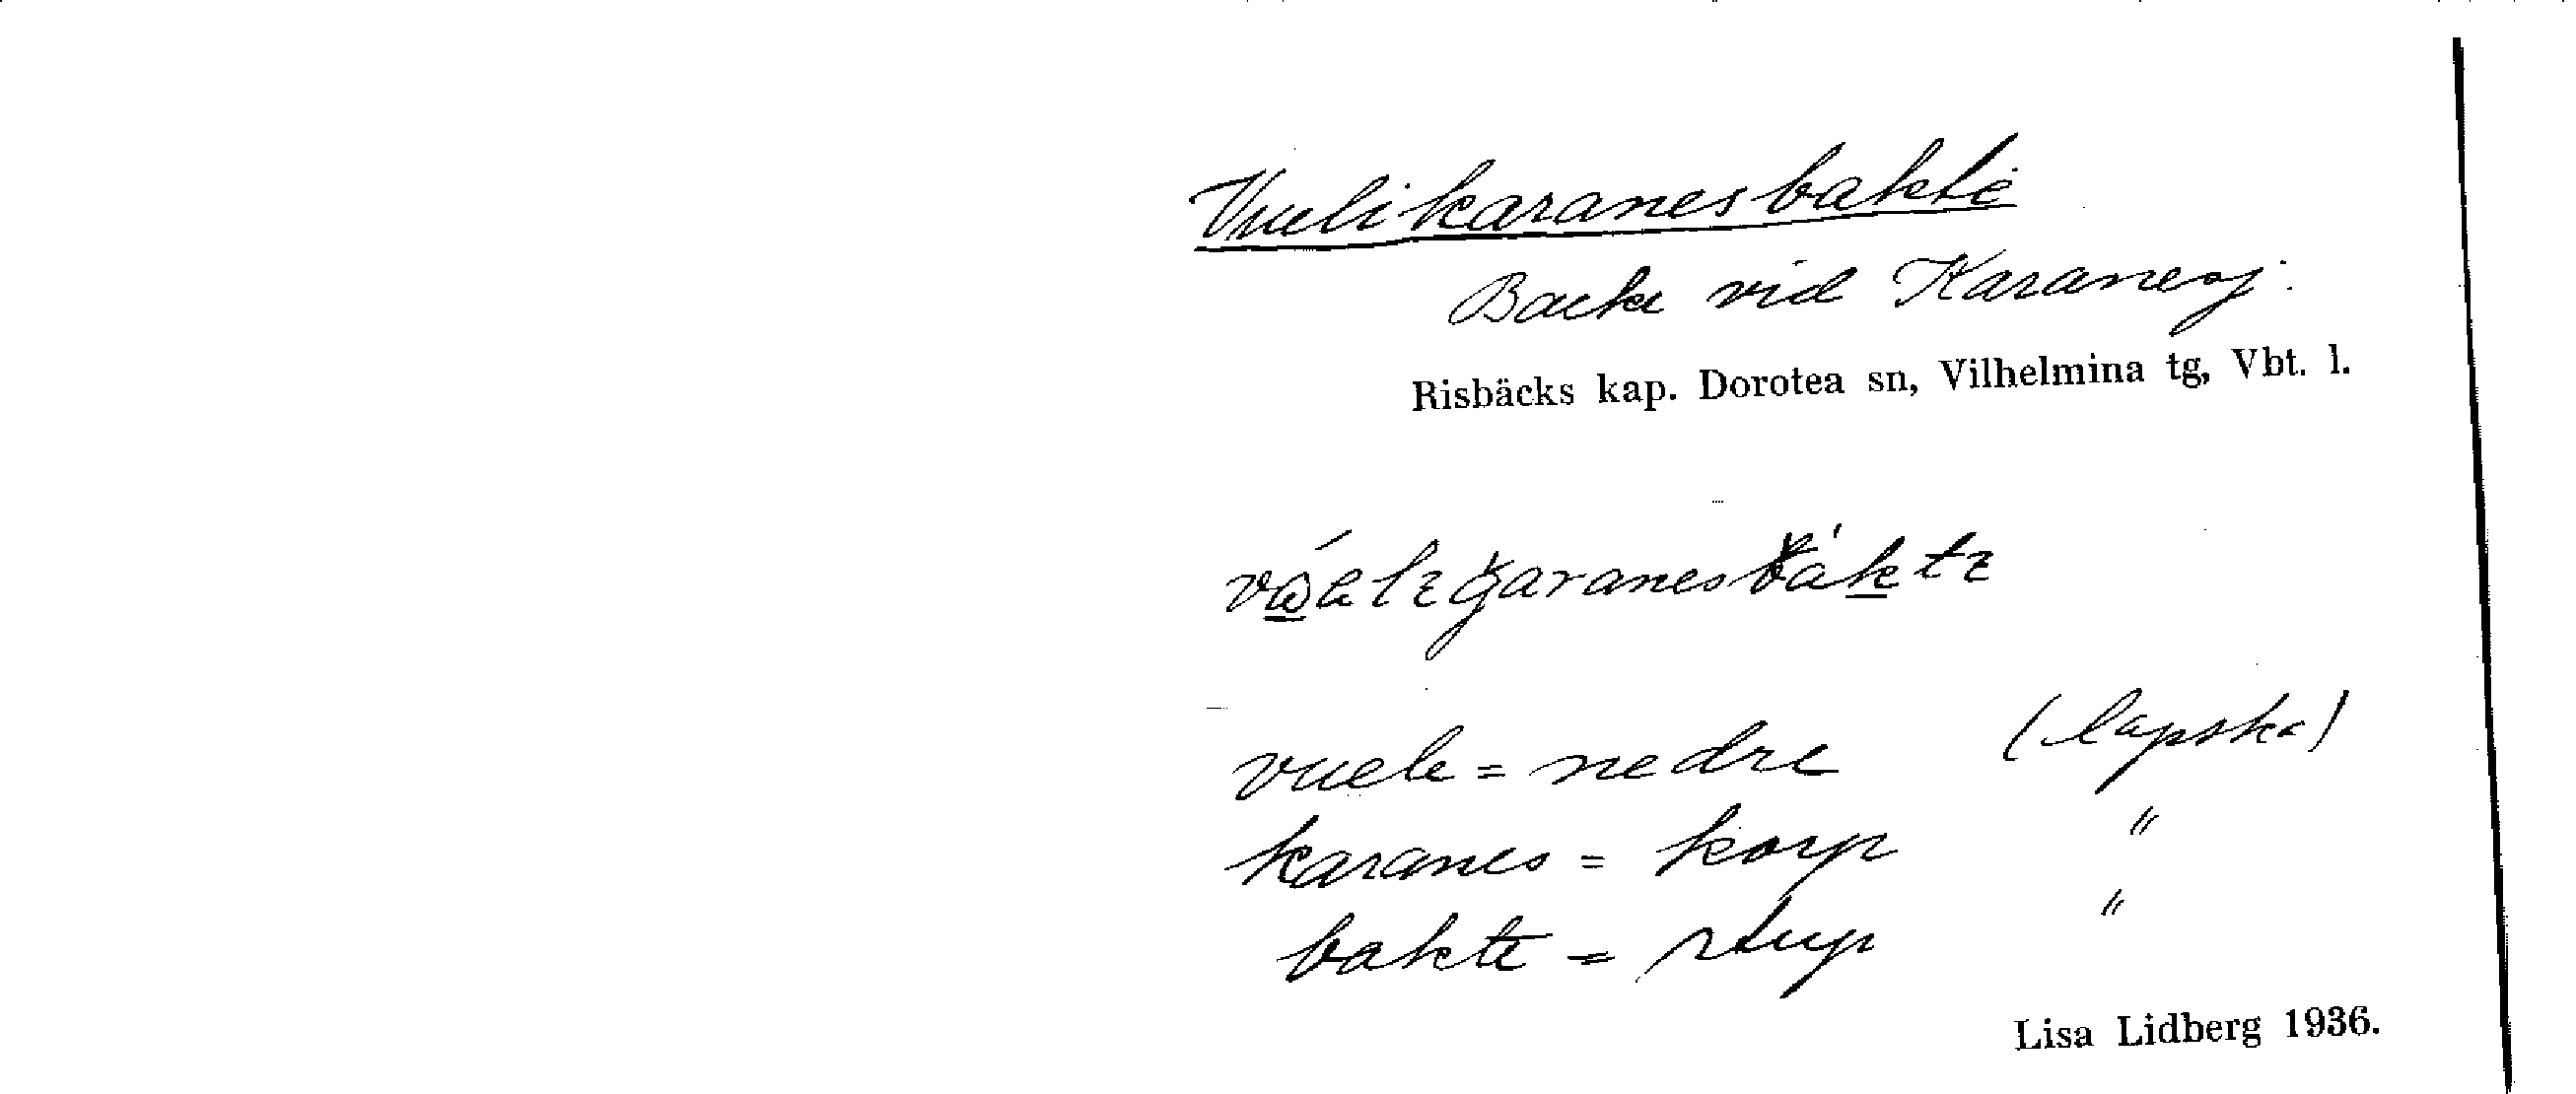 Vuelikaranesbakte
Backe vid Karanesj.
Risbäcks kap. Dorotea sn, Vilhelmina tg, Vbt. l.
vuele = nedre (lapska)
karanes = korp "
bakte = stup "
Lisa Lidberg 1936.